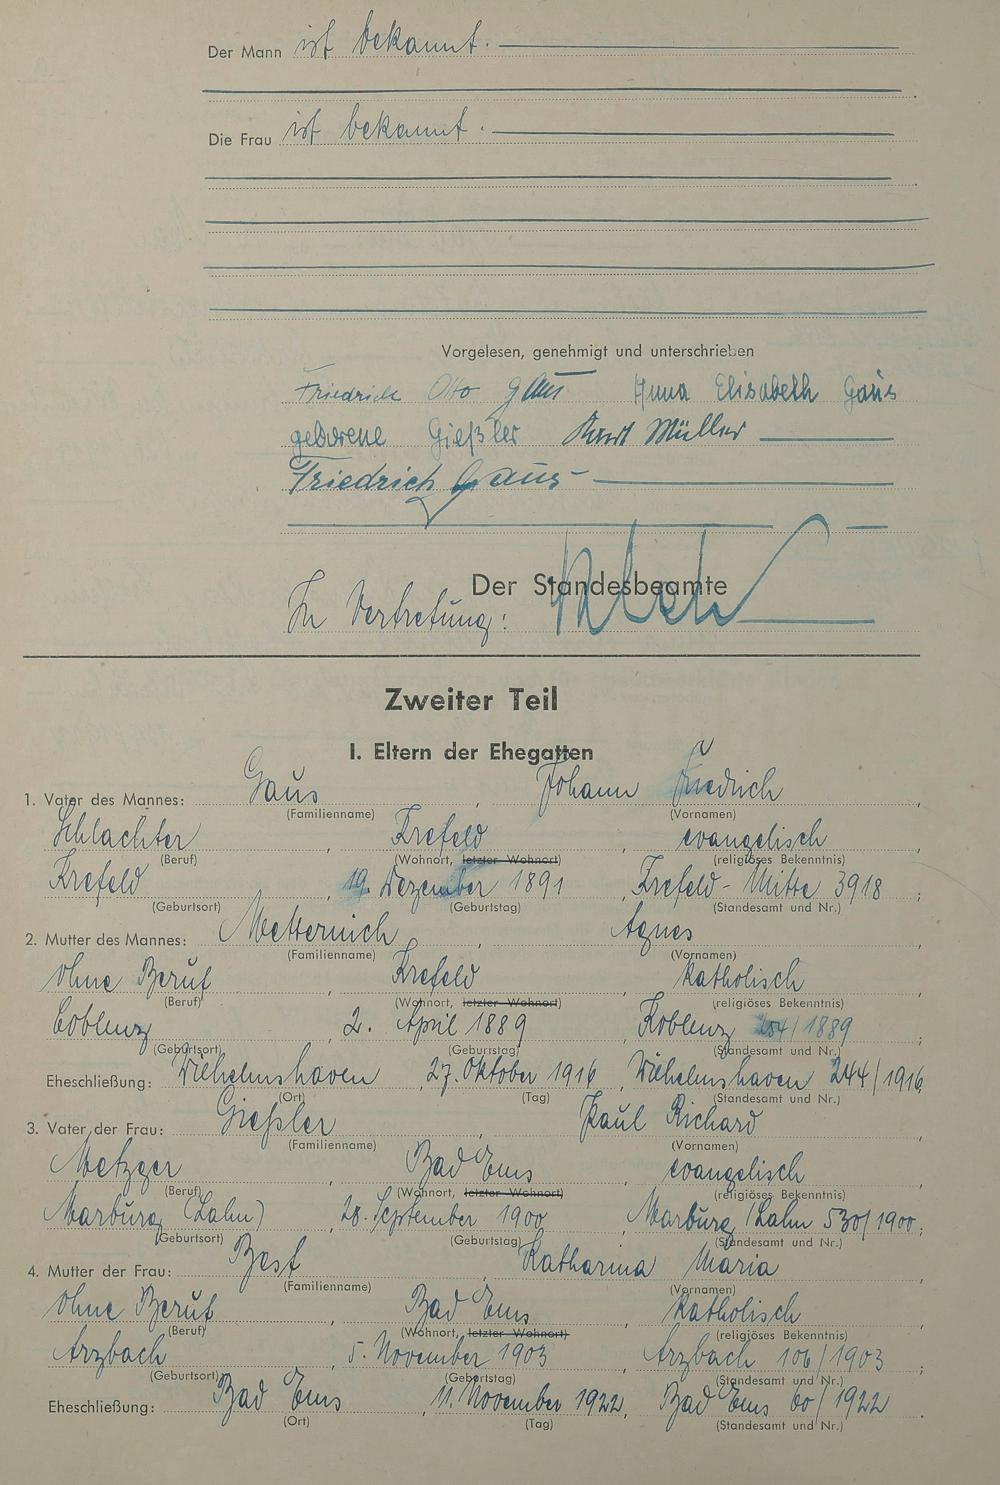 Der Mann ist bekannt.
Die Frau ist bekannt.
Vorgelesen, genehmigt und unterschrieben
Friedrich Otto Gaus Anna Elisabeth Gaus
geborene Gießler Kurt Müller
Friedrich Gaus
Der Standesbeamte
In Vertretung:
Zweiter Teil
I. Eltern der Ehegatten
1. Vater des Mannes: Gaus, Johann Friedrich,
(Familienname) (Vornamen)
Schlachter, Krefeld, evangelisch
(Beruf) (Wohnort, letzter Wohnort) (religiöses Bekenntnis)
Krefeld, 19. Dezember 1891, Krefeld-Mitte 3918;
(Geburtsort) (Geburtstag) (Standesamt und Nr.)
2. Mutter des Mannes: Metternich, Agnes,
(Familienname) (Vornamen)
ohne Beruf, Krefeld, katholisch
(Beruf) (Wohnort, letzter Wohnort) (religiöses Bekenntnis)
Coblenz, 2. April 1889, Koblenz 254/1889;
(Geburtsort) (Geburtstag) (Standesamt und Nr.)
Eheschließung: Wilhelmshaven, 27. Oktober 1916, Wilhelmshaven 244/1916.
(Ort) (Tag) (Standesamt und Nr.)
3. Vater der Frau: Gießler, Paul Richard,
(Familienname) (Vornamen)
Metzger, Bad Ems, evangelisch
(Beruf) (Wohnort, letzter Wohnort) (religiöses Bekenntnis)
Marburg (Lahn), 28. September 1900, Marburg/Lahn 530/1900;
(Geburtsort) (Geburtstag) (Standesamt und Nr.)
4. Mutter der Frau: Best, Katharina Maria,
(Familienname) (Vornamen)
ohne Beruf, Bad Ems, katholisch
(Beruf) (Wohnort, letzter Wohnort) (religiöses Bekenntnis)
Arzbach, 5. November 1903, Arzbach 106/1903;
(Geburtsort) (Geburtstag) (Standesamt und Nr.)
Eheschließung: Bad Ems, 11. November 1922, Bad Ems 60/1922.
(Ort) (Tag) (Standesamt und Nr.)